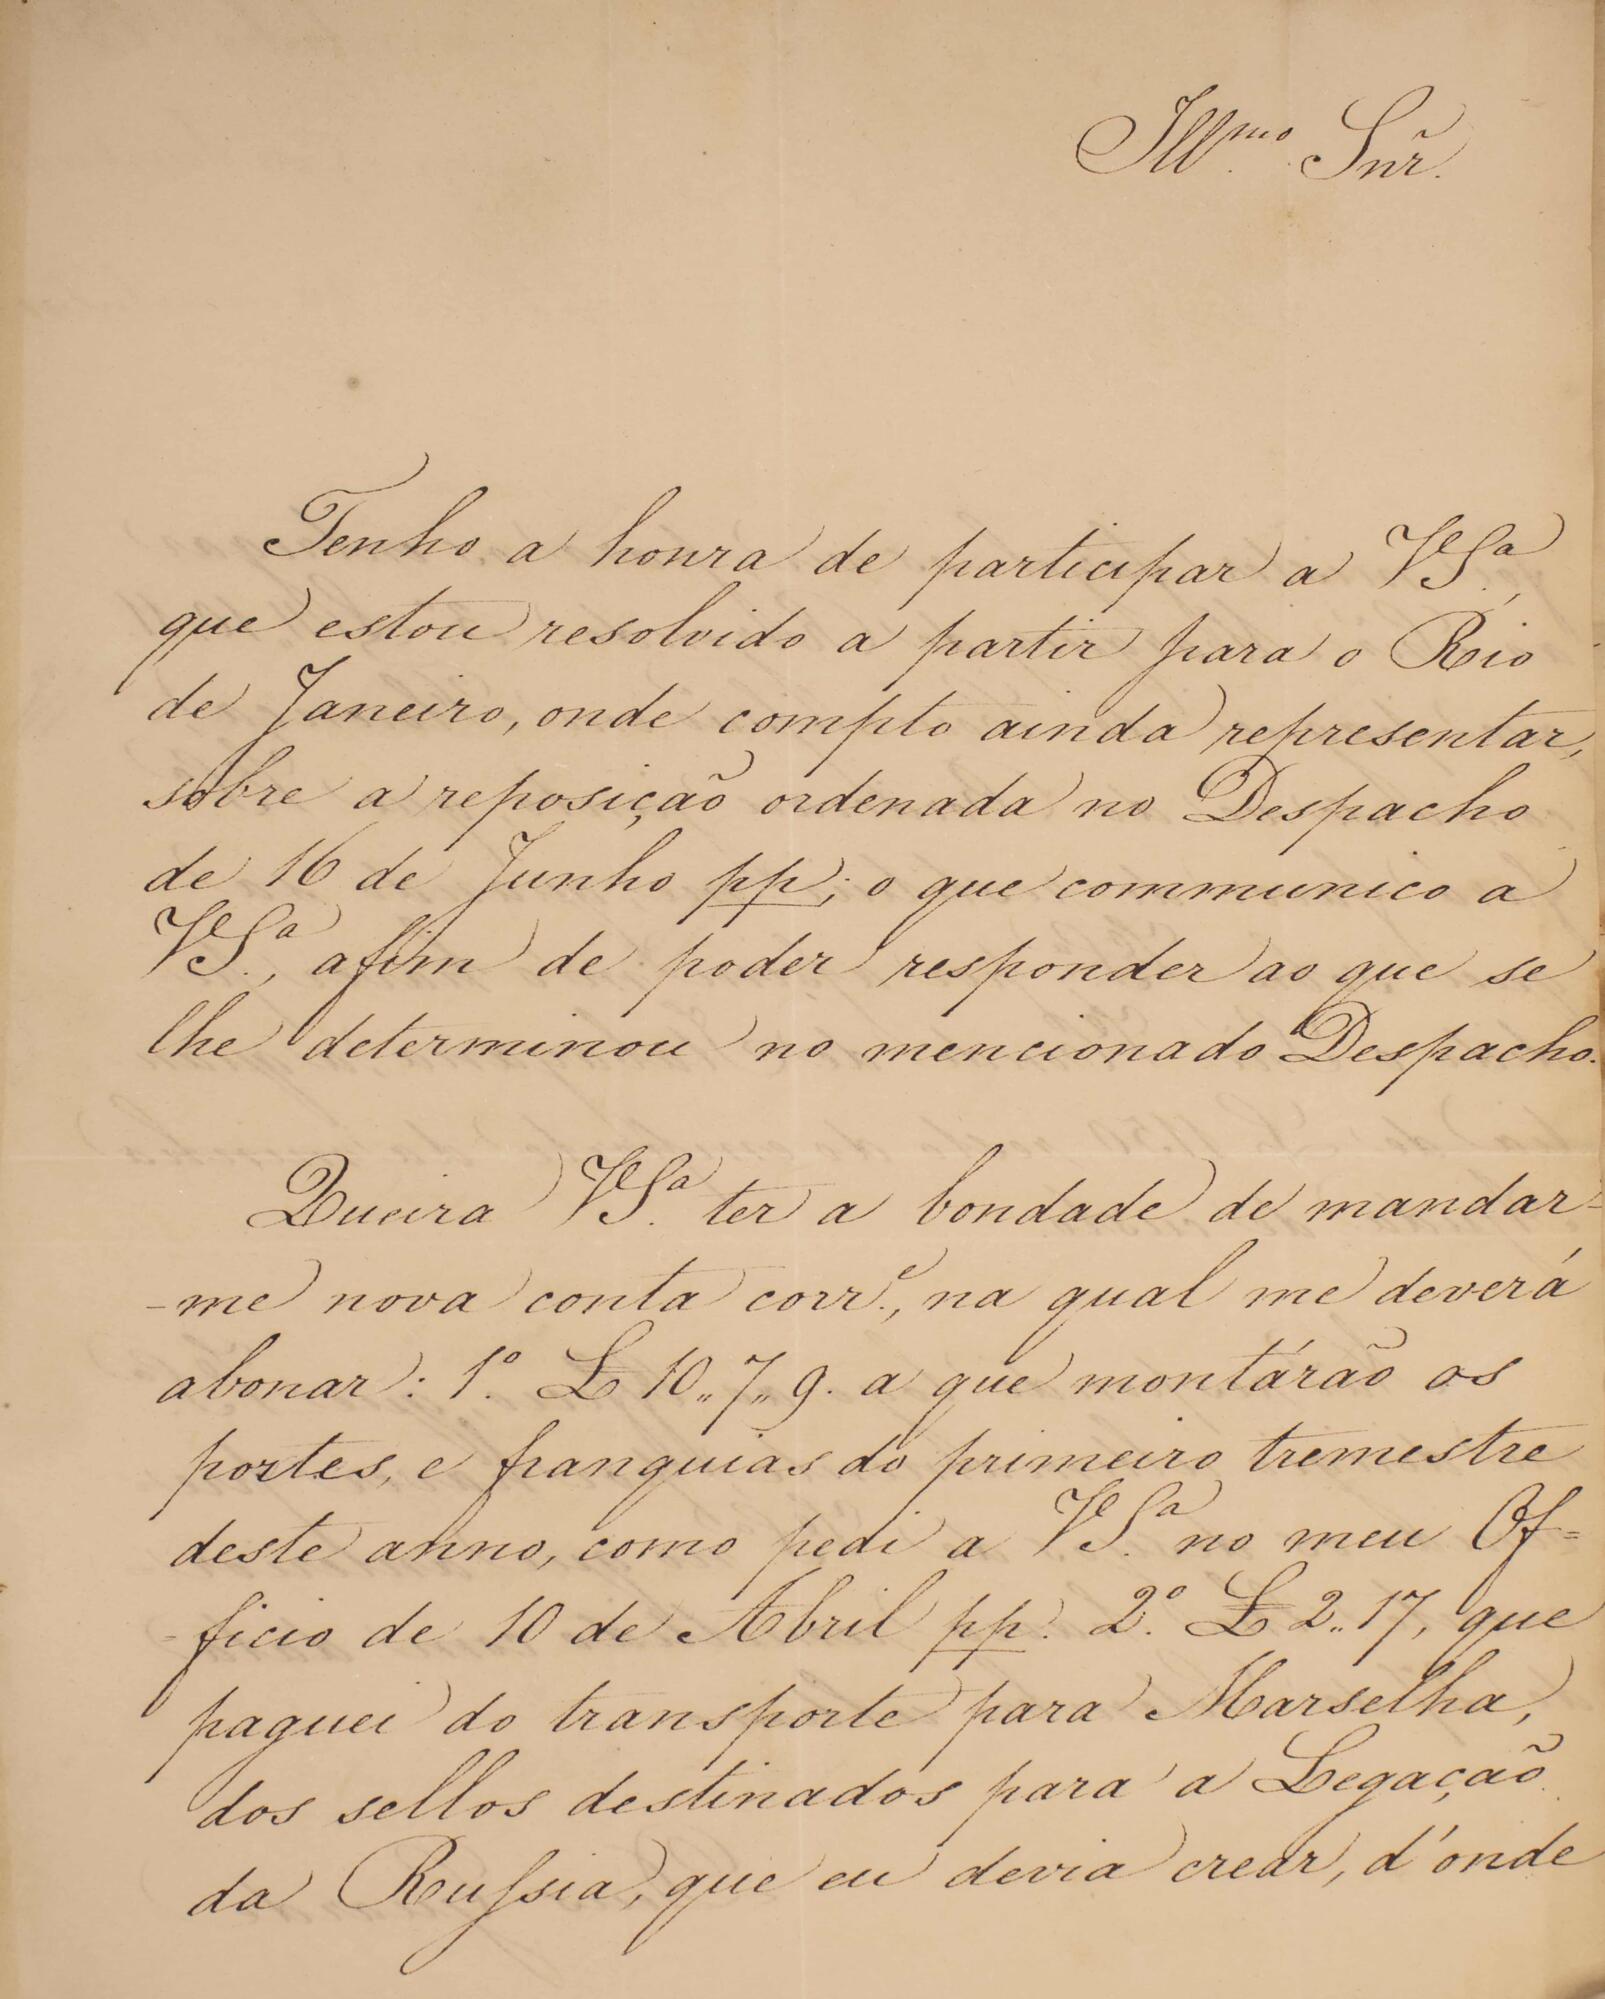 Illmo. Snr̃.
Tenho a honra de participar a VSa.,
que estou resolvido a partir para o Rio
de Janeiro, onde compto ainda representar,
sobre a reposição ordenada no Despacho
de 16 de Junho pp; o que communico a
VSa., afim de poder responder ao que se
lhe determinou no mencionado Despacho.
Queira VSa. ter a bondade de mandar-
-me nova conta corre., na qual me deverá
abonar: 1º. £ 10,,7,,9. a que montárão os
portes, e franquias do primeiro tremestre
deste anno, como pedi a VSa. no meu Of=
-ficio de 10 de Abril pp. 2º. £ 2,,17, que
paguei do transporte para Marselha,
dos sellos destinados para a Legação
da Ruſsia, que eu devia crear, d'onde